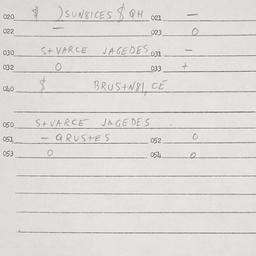 020 $ )SUN8ICES $ QH 021 —
022 — 023 O
030 S+VARCE JAGEDES 031 —
032 O 033 +
040 $ BRUS+N81, CE
050 S+VARCE JAGEDES
051 – QRUS+ES 052 O
053 O 054 O